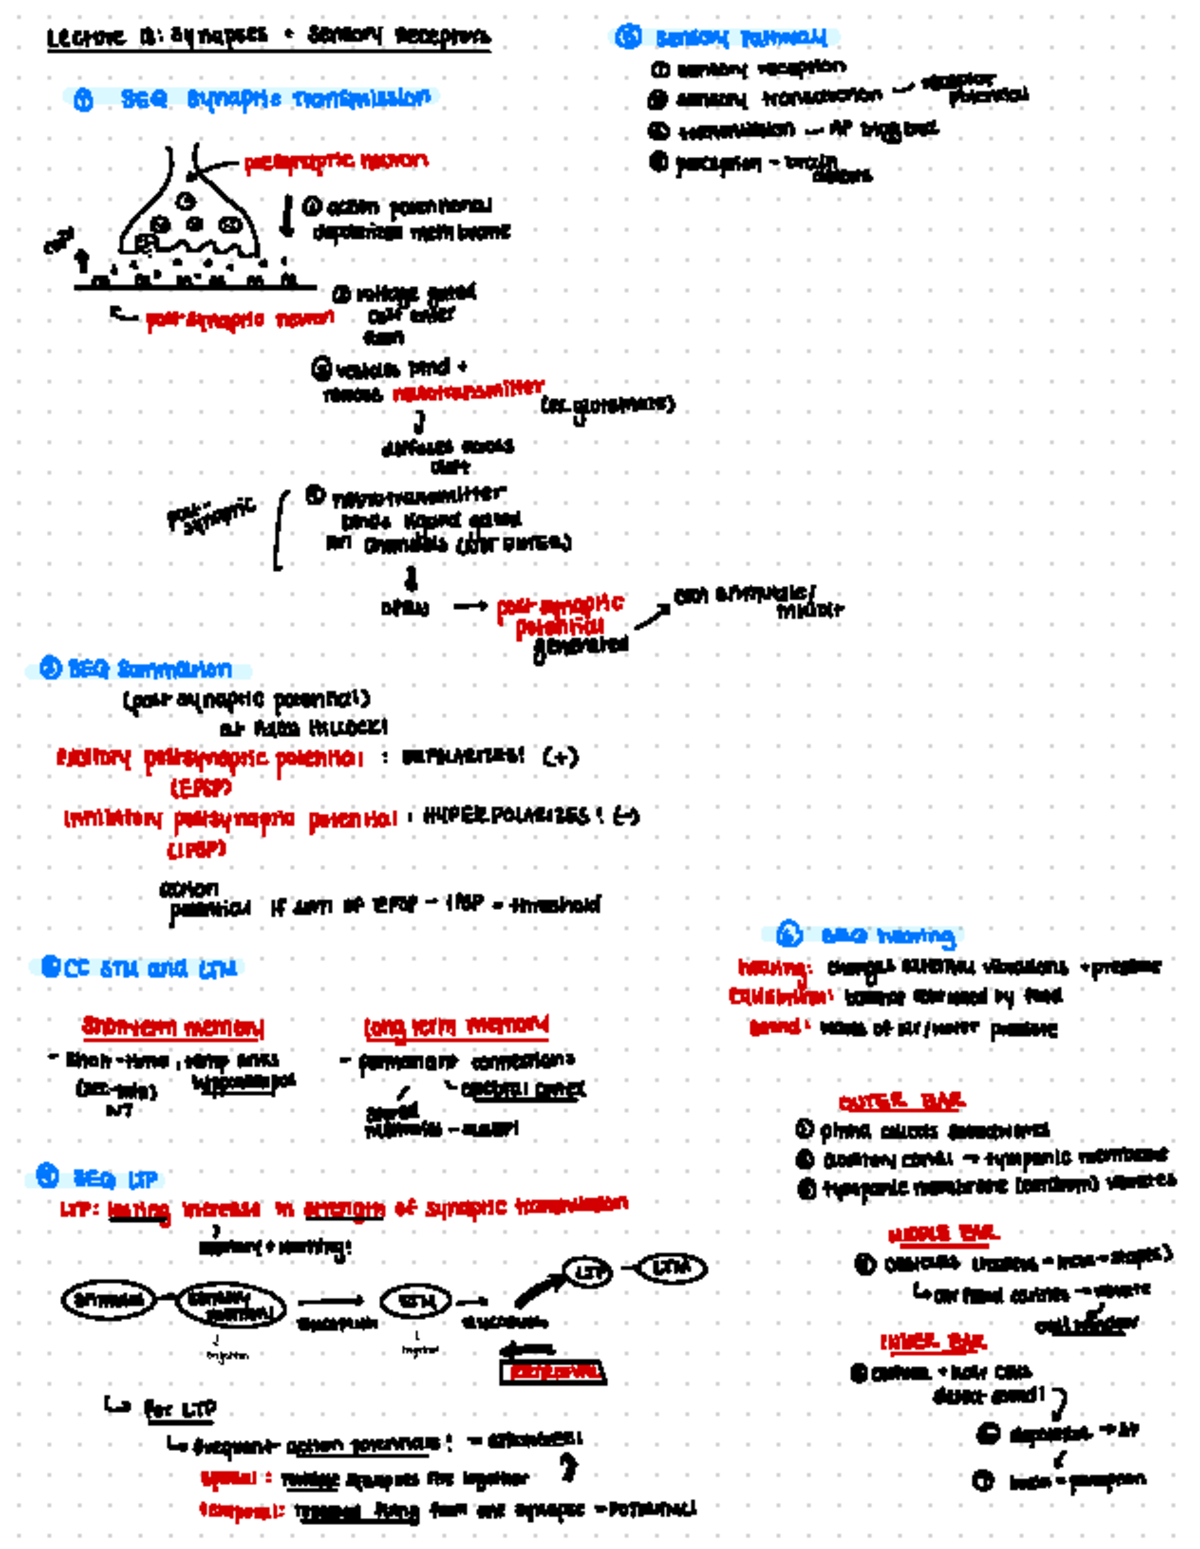 Lecture 13: Synapses + Sensory Receptors
① SEQ Synaptic Transmission
presynaptic neuron
① action potential
depolarizes membrane
post-synaptic neuron
② voltage gated
Ca²⁺ enter
③ vesicles bind +
release neurotransmitter
(ex. glutamate)
diffuses across
cleft
post-synaptic
④ neurotransmitter
binds ligand gated
ion channels
open → post synaptic
potential
generated
can stimulate/
inhibit
② SEQ Summation
(post synaptic potential)
at AXON HILLOCK!
Excitory postsynaptic potential : DEPOLARIZES! (+)
(EPSP)
Inhibitory postsynaptic potential : HYPERPOLARIZES! (-)
(IPSP)
action
potential if sum of EPSP - IPSP = threshold
③ CC STM and LTM
Short-term memory
- Short-time, temp links
(sec-min)
hippocampus
Long term memory
- permanent connections
cerebral cortex
stored
④ SEQ LTP
LTP: lasting increase in strength of synaptic transmission
memory + learning!
stimulus
sensory
memory
attention
STM
LTP - LTM
↳ For LTP
↳ frequent action potentials!
spatial: multiple synapses fire together
temporal: repeated firing from one synapse
⑤ Sensory Pathway
① sensory reception
② sensory transduction
receptor
potential
③ transmission - AP triggered
④ perception - brain
⑥ SEQ hearing
hearing: changes external vibrations + pressure
Equilibrium: balance determined by fluid
Sound: waves of air/water pressure
OUTER EAR
① pinna collects soundwaves
② auditory canal → tympanic membrane
③ tympanic membrane (eardrum) vibrates
MIDDLE EAR
④ ossicles (malleus - incus - stapes)
↳ air filled cavities → vibrate
oval window
INNER EAR
⑤ cochlea + hair cells
detect sound!
⑥ depolarize → AP
⑦ brain - perception